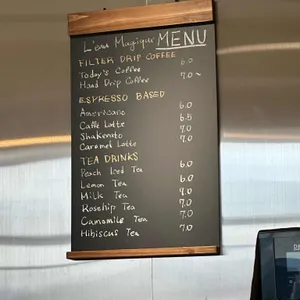 L'eau Magique MENU
FILTER DRIP COFFEE
Today's Coffee 6.0
Hand Drip Coffee 7.0~
ESPRESSO BASED
Americano 6.0
Caffé Latte 6.5
Shakerato 7.0
Caramel Latte 7.0
TEA DRINKS
Peach Iced Tea 6.0
Lemon Tea 6.0
Milk Tea 7.0
Rosehip Tea 7.0
Camomile Tea 7.0
Hibiscus Tea 7.0